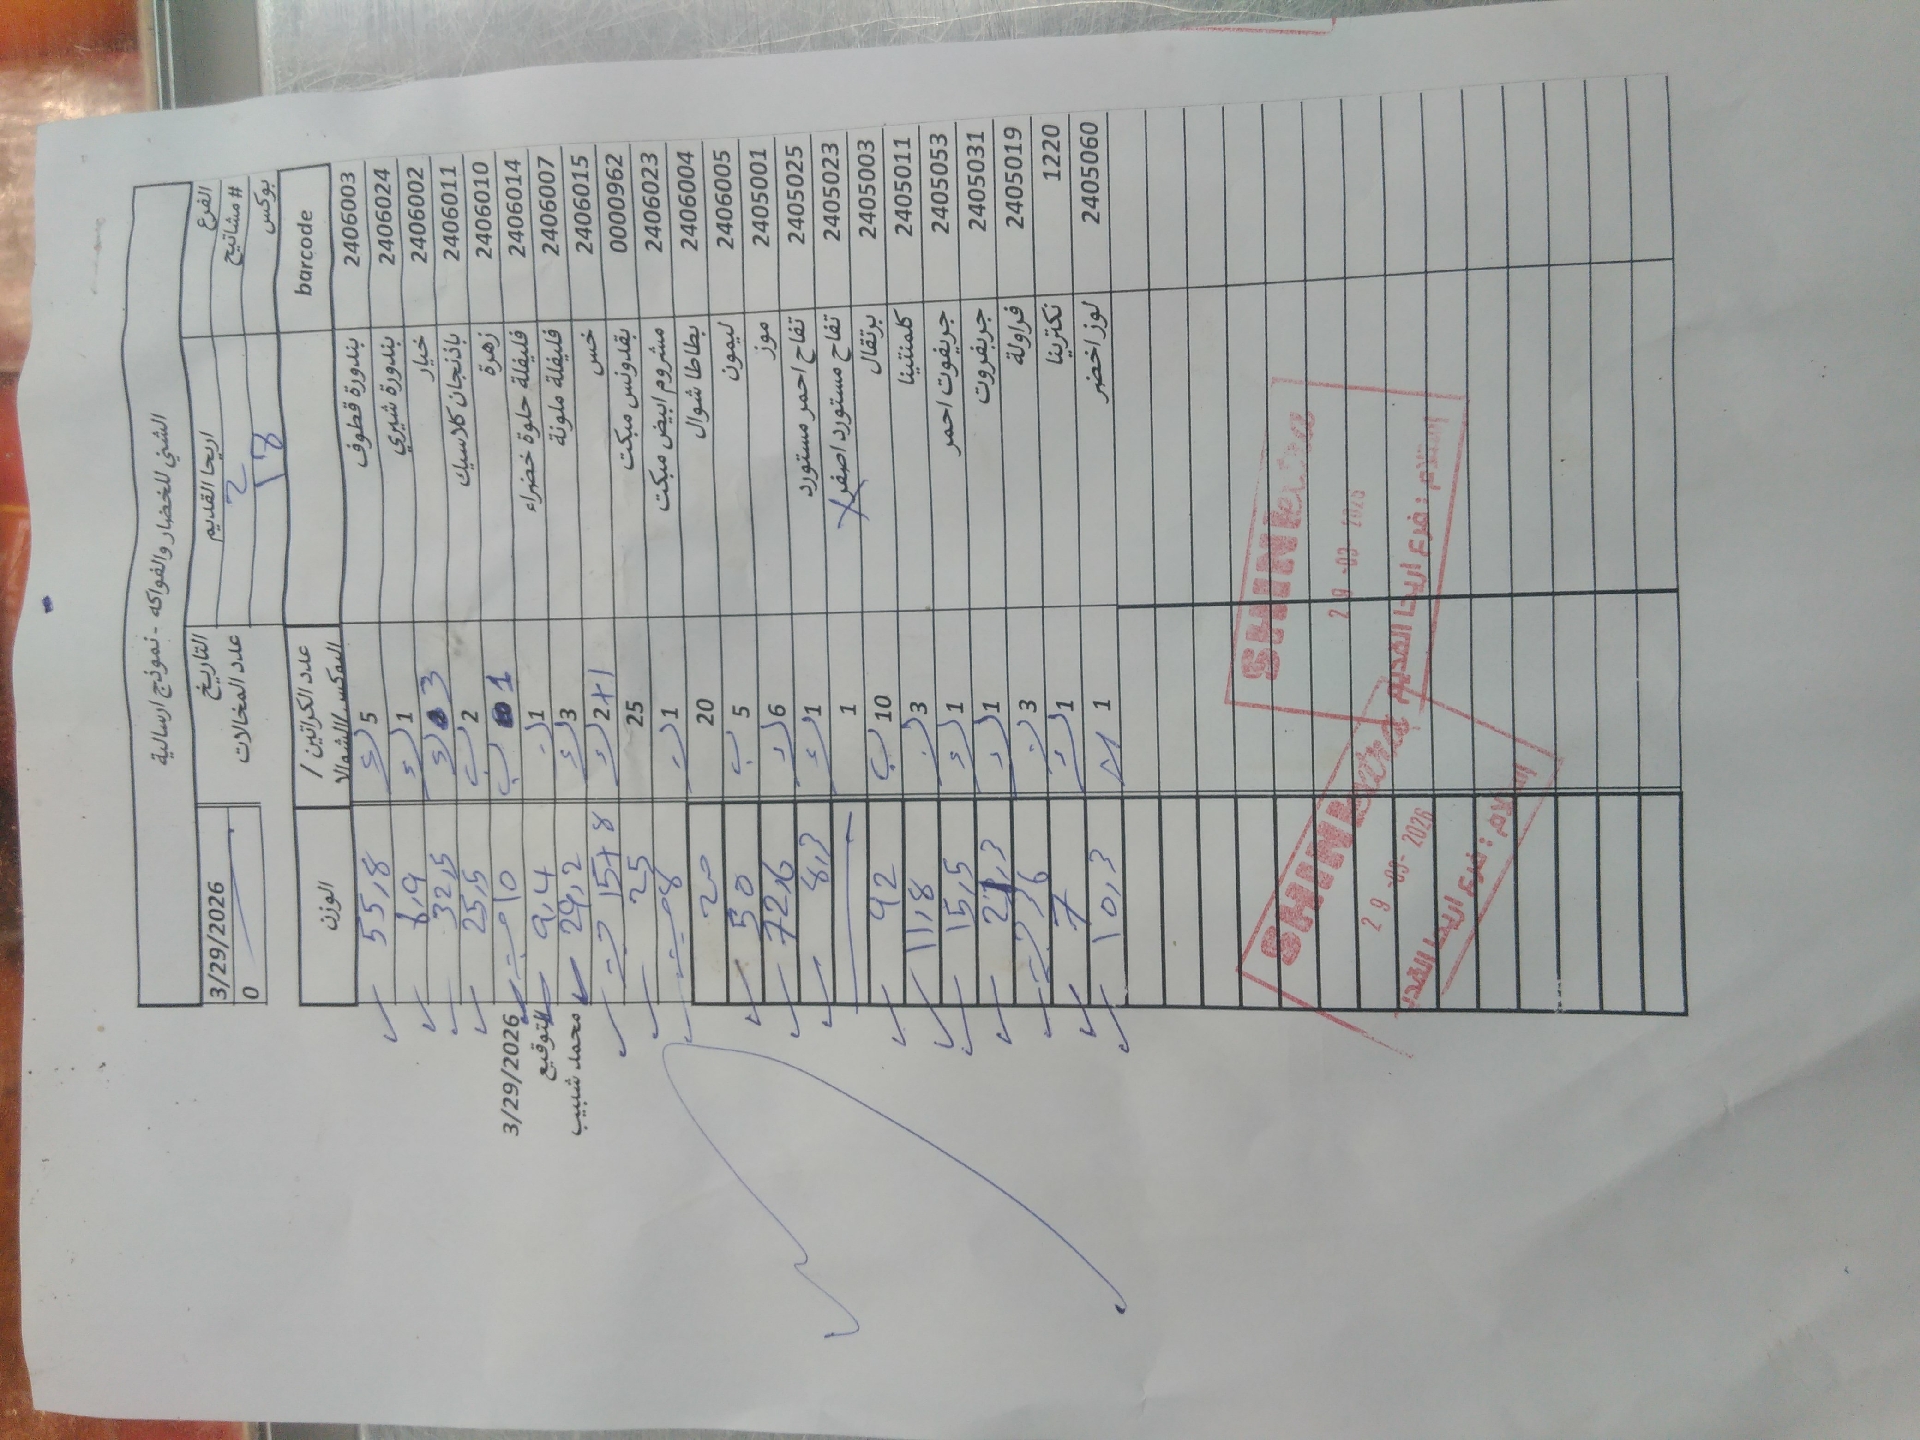 الشني للخضار والفواكه - نموذج ارسالية
الفرع اريحا القديم التاريخ 3/29/2026
#مشاتيح 2 عدد المخالات 0
بوكس 18
barcode عدد الكراتين / البوكس/الشوالا الوزن
2406003 بندورة قطوف 5 55,8
2406024 بندورة شيري 1 1,9
2406002 خيار 3 32,5
2406011 باذنجان كلاسيك 2 ب 25,5
2406010 زهرة 1 ب 10 حبت
2406014 فليفلة حلوة خضراء 1 9,4
2406007 فليفلة ملونة 3 29,2
2406015 خس 2+1 15+8
0000962 بقدونس مبكت 25 25
2406023 مشروم ابيض مبكت 1 8
2406004 بطاطا شوال 20 20
2406005 ليمون 5 ب 50
2405001 موز 6 72,6
2405025 تفاح احمر مستورد 1 8,3
2405023 تفاح مستورد اصفر X 1
2405003 برتقال 10 ب 92
2405011 كلمنتينا 3 11,8
2405053 جريفوت احمر 1 15,5
2405031 جريفروت 1
2405019 فراولة 3
1220 نكترينا 1 7
2405060 لوز اخضر 1 10,3
3/29/2026
التوقيع
محمد شبيب
SHINI extra
29-03-2026
السلام : فرع اريحا القديم
SHINI extra
29-03-2026
السلام : فرع اريحا القديم